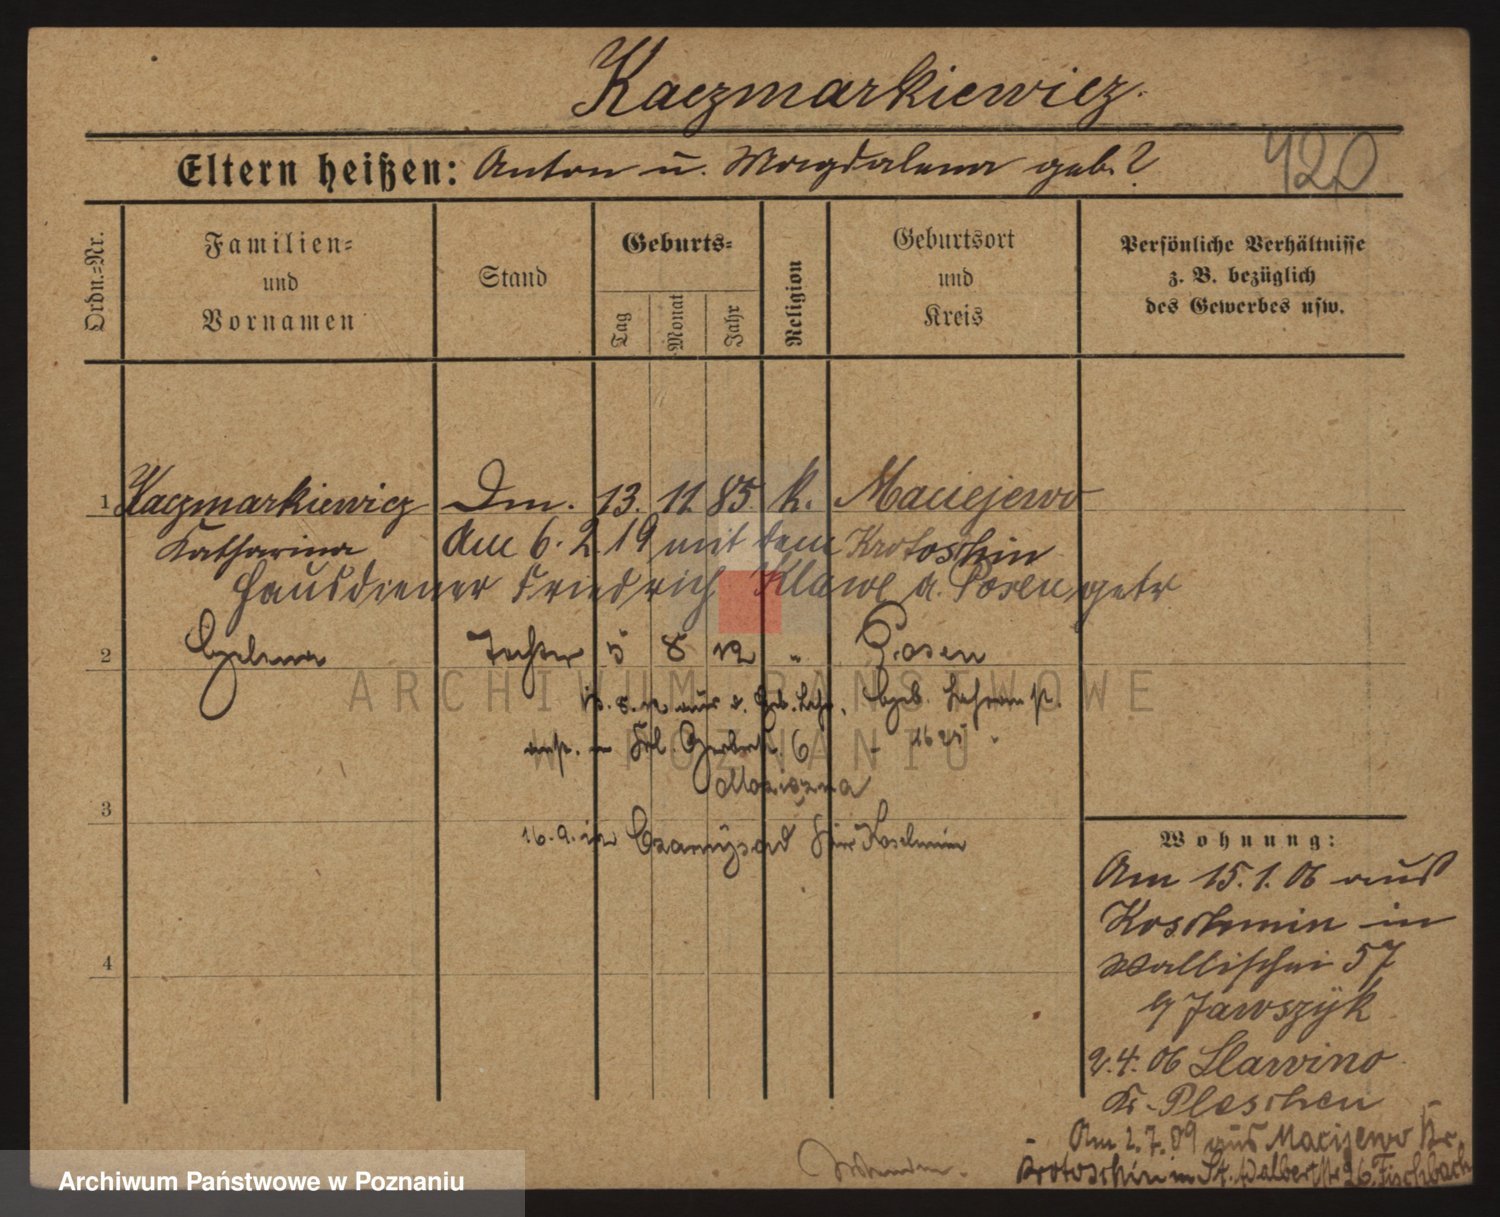 Kaczmarkiewicz.
Eltern heißen: Anton u. Magdalena geb. ?
420
Ordn.=Nr.
Familien= und Vornamen
Stand
Geburts=
Tag
Monat
Jahr
Religion
Geburtsort und Kreis
Persönliche Verhältnisse
z. B. bezüglich
des Gewerbes usw.
1 Kaczmarkiewicz Dm. 13. 11 85. k. Maciejewo
Katharina Am 6. 2. 19 mit dem Krotoschin
Hausdiener Friedrich Klawe a. Posen getr
2 Tochter 5 8 12 " Posen
ARCHIWUM PAŃSTWOWE
W POZNANIU
3
16. 9. 12 Koschmin
4
Wohnung:
Am 15. 1. 06 aus
Koschmin in
Wallischei 57
Jawszÿk
2. 4. 06 Slawino
Kr. Pleschen
Am 2. 7. 09 aus Maciejewo Kr.
Krotoschin in St. Adalbertstr 26. Fischbach
Archiwum Państwowe w Poznaniu